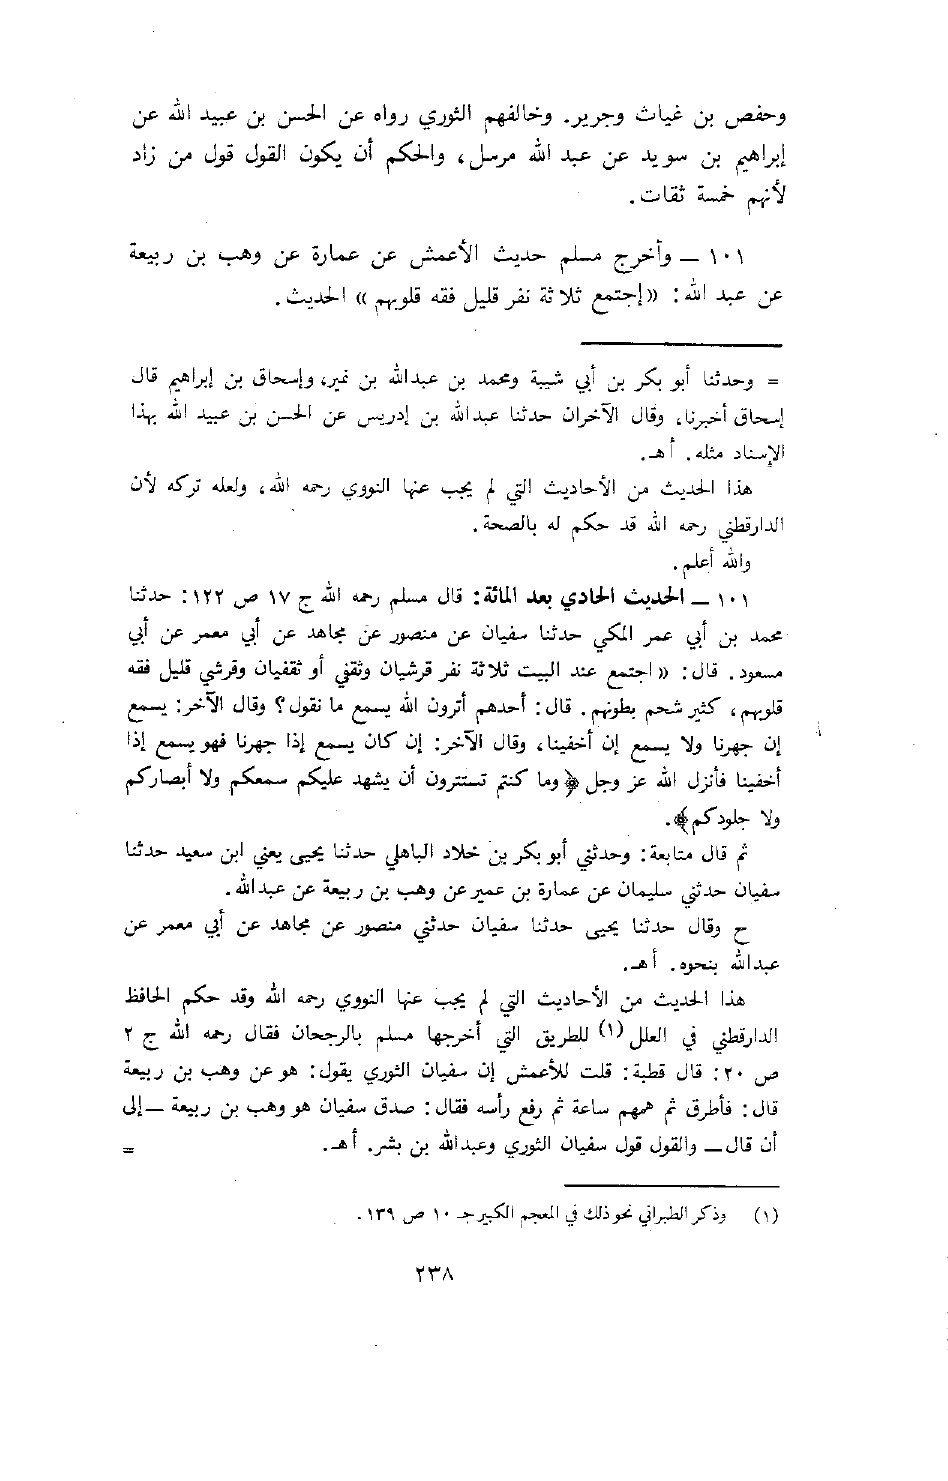 وحفص بن غياث وجرير. وخالفهم الثوري رواه عن الحسن بن عبيد الله عن
إبراهيم بن سويد عن عبد الله مرسل، والحكم أن يكون القول قول من زاد
لأنهم خمسة ثقات.
١٠١ ــ وأخرج مسلم حديث الأعمش عن عمارة عن وهب بن ربيعة
عن عبد الله: «إجتمع ثلاثة نفر قليل فقه قلوبهم» الحديث.
= وحدثنا أبو بكر بن أبي شيبة ومحمد بن عبدالله بن نمير، وإسحاق بن إبراهيم قال
إسحاق أخبرنا، وقال الآخران حدثنا عبدالله بن إدريس عن الحسن بن عبيد الله بهذا
الإسناد مثله. أهـ.
هذا الحديث من الأحاديث التي لم يجب عنها النووي رحمه الله، ولعله تركه لأن
الدارقطني رحمه الله قد حكم له بالصحة.
والله أعلم.
١٠١ ــ الحديث الحادي بعد المائة: قال مسلم رحمه الله ج ١٧ ص ١٢٢: حدثنا
محمد بن أبي عمر المكي حدثنا سفيان عن منصور عن مجاهد عن أبي معمر عن أبي
مسعود. قال: «اجتمع عند البيت ثلاثة نفر قرشيان وثقفي أو ثقفيان وقرشي قليل فقه
قلوبهم، كثير شحم بطونهم. قال: أحدهم أترون الله يسمع ما نقول؟ وقال الآخر: يسمع
إن جهرنا ولا يسمع إن أخفينا، وقال الآخر: إن كان يسمع إذا جهرنا فهو يسمع إذا
أخفينا فأنزل الله عز وجل ﴿وما كنتم تستترون أن يشهد عليكم سمعكم ولا أبصاركم
ولا جلودكم﴾.
ثم قال متابعة: وحدثني أبو بكر بن خلاد الباهلي حدثنا يحيى يعني ابن سعيد حدثنا
سفيان حدثني سليمان عن عمارة بن عمير عن وهب بن ربيعة عن عبدالله.
ح وقال حدثنا يحيى حدثنا سفيان حدثني منصور عن مجاهد عن أبي معمر عن
عبدالله بنحوه. أهـ.
هذا الحديث من الأحاديث التي لم يجب عنها النووي رحمه الله وقد حكم الحافظ
الدارقطني في العلل (١) للطريق التي أخرجها مسلم بالرجحان فقال رحمه الله ج ٢
ص ٢٠: قال قطبة: قلت للأعمش إن سفيان الثوري يقول: هو عن وهب بن ربيعة
قال: فأطرق ثم همهم ساعة ثم رفع رأسه فقال: صدق سفيان هو وهب بن ربيعة ــ إلى
أن قال ــ والقول قول سفيان الثوري وعبدالله بن بشر. أهـ. =
(١) وذكر الطبراني نحو ذلك في المعجم الكبير جـ ١٠ ص ١٣٩.
٢٣٨